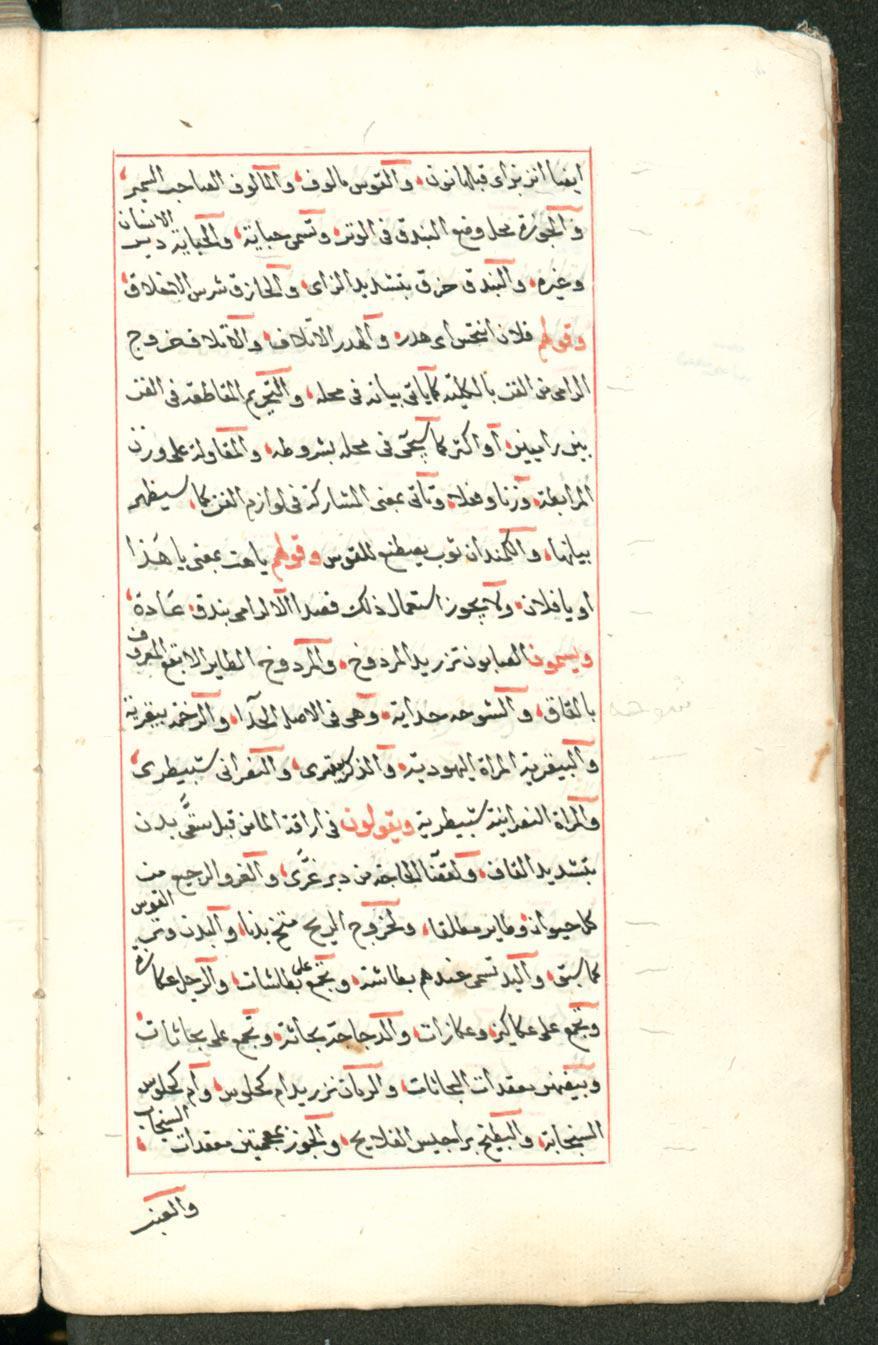 ايضا انزبراى قبلها نون، والقوس مالوف، والمالوف الصاحب
والجوزة محل وضع البندق فى الوتر، وتسمى حباية، والحباية الانسان
وغيره، والبندق حزق بتشديد الزاى، والحازق شرس الاخلاق،
وقولهم فلان انتخس اى هدر، والهدر الاتلاف، والاتلاف خروج
الرامى من الفن بالكلية كما ياتى بيانه فى محله، والتجريم المقاطعة فى الفن
بين راميين، او اكثر كما سيجى فى محله بشروطه، والمقاولة على وزن
المرابطة، وزنا وفعلا، وتاتى بمعنى المشاركة فى لوازم الفن كما سيظهر
بيانها، والكمندان ثوب يصطنع للقوس وقولهم يا هت بمعنى يا هذا
او يا فلان، ولا يجوز استعمال ذلك قصدا الا لرامى بندق، عادة،
ويسمون الصابون تزريد المردوخ، والمردوخ الطاير الابقع المعروف
بالقاق، والشوحه حداية، وهى فى الاصل الحدآ، والرخمه بيقرية
والبيقرية المراة اليهودية، والذكر بيقرى، والنصرانى شبيطرى،
والمراة النصرانية شبيطرية ويقولون فى اراقة الما من قبل سقَّى بدن
بتشديد القاف، ولقضا الحاجة من دبر غرَّى، والغرو الرجيع من
كل حيوان، وطاير مطلقا، ولخروج الريح منتخ بدنا، والبدن وتر القوس
كما سبق، واليد تسمى عندهم بطاشة، وتجمع على بطاشات، والرجل عكازه
وتجمع على عكاكيز، وعكازات، والدجاجة بحاثة، وتجمع على بحاثات،
وبيضهن معقدات البحاثات، والرمان تزريد ام كحلوس، وام كحلوس
السنجابة، والبطيخ براجيس الفلايح، والجوز بمعجمتين معقدات السنجاب،
والعنبر